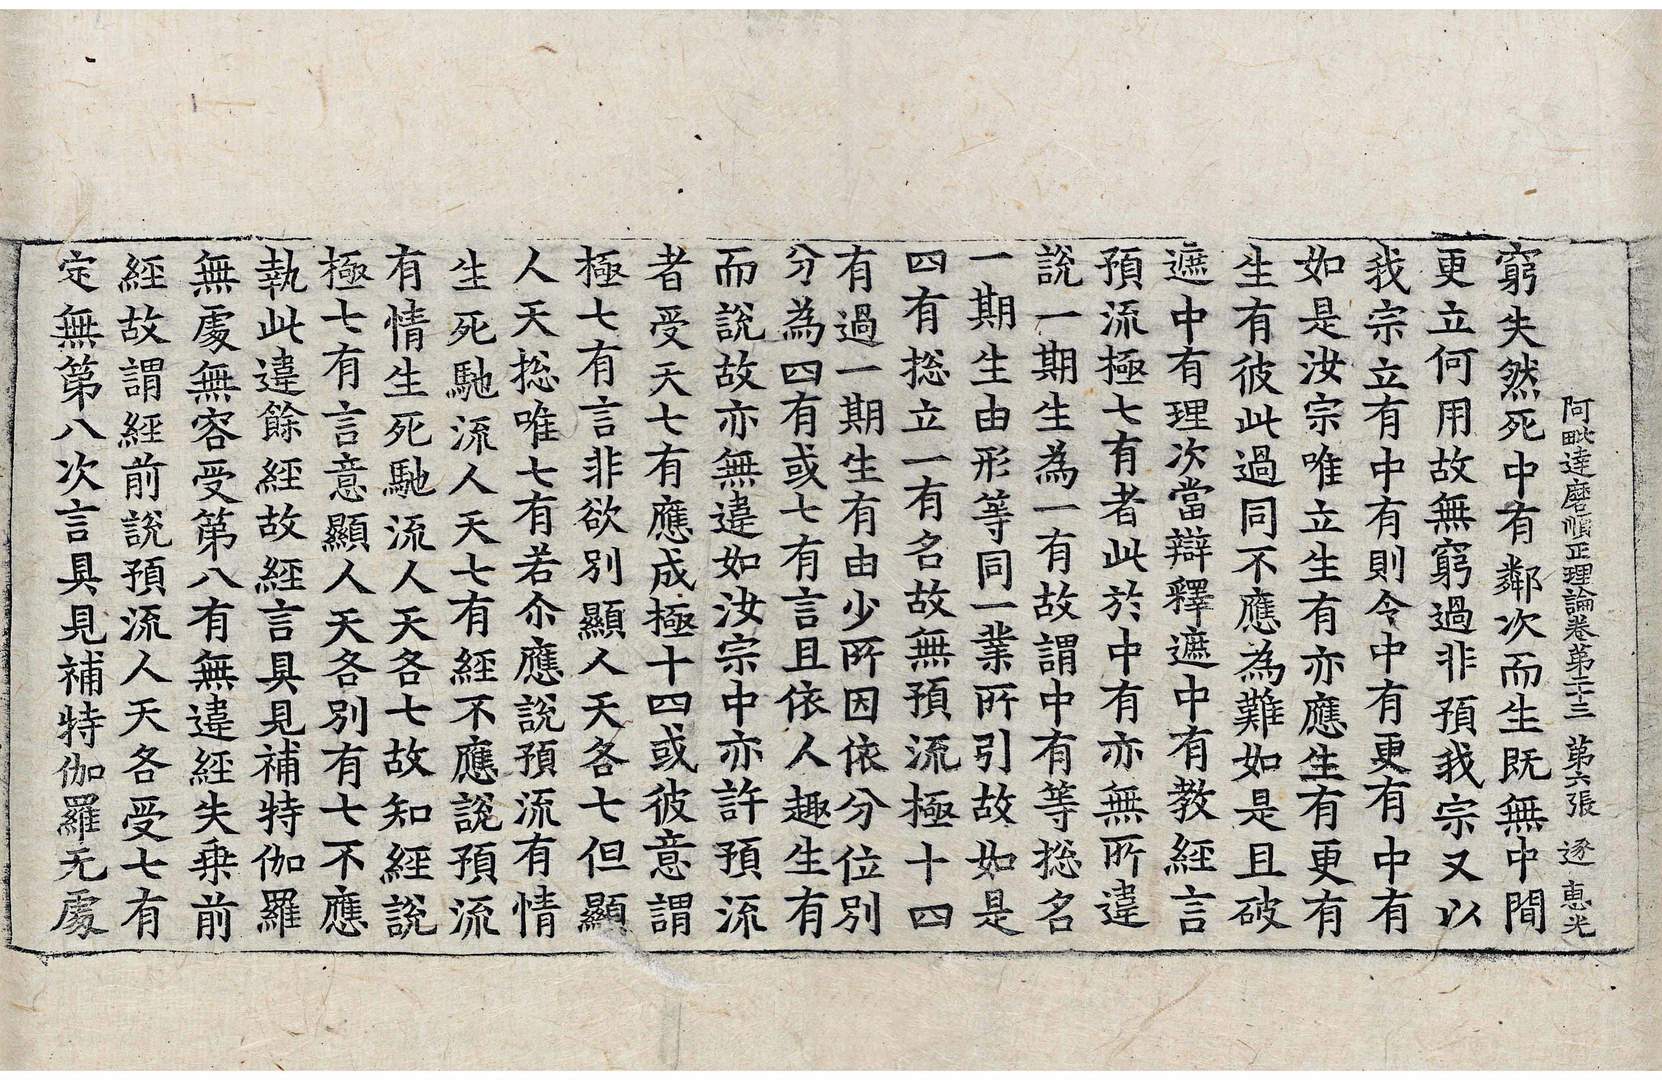 阿毗達磨順正理論卷第二十三 第六張 逐 惠光
窮失然死中有鄰次而生既無中間
更立何用故無窮過非預我宗又以
我宗立有中有則令中有更有中有
如是汝宗唯立生有亦應生有更有
生有彼此過同不應為難如是且破
遮中有理次當辯釋遮中有教經言
預流極七有者此於中有亦無所違
說一期生為一有故謂中有等捴名
一期生由形等同一業所引故如是
四有捴立一有名故無預流極十四
有過一期生有由少所因依分位別
分為四有或七有言且依人趣生有
而說故亦無違如汝宗中亦許預流
者受天七有應成極十四或彼意謂
極七有言非欲別顯人天各七但顯
人天捴唯七有若尒應說預流有情
生死馳流人天七有經不應說預流
有情生死馳流人天各七故知經說
極七有言意顯人天各別有七不應
執此違餘經故經言具見補特伽羅
無處無容受第八有無違經失乗前
經故謂經前說預流人天各受七有
定無第八次言具見補特伽羅无處